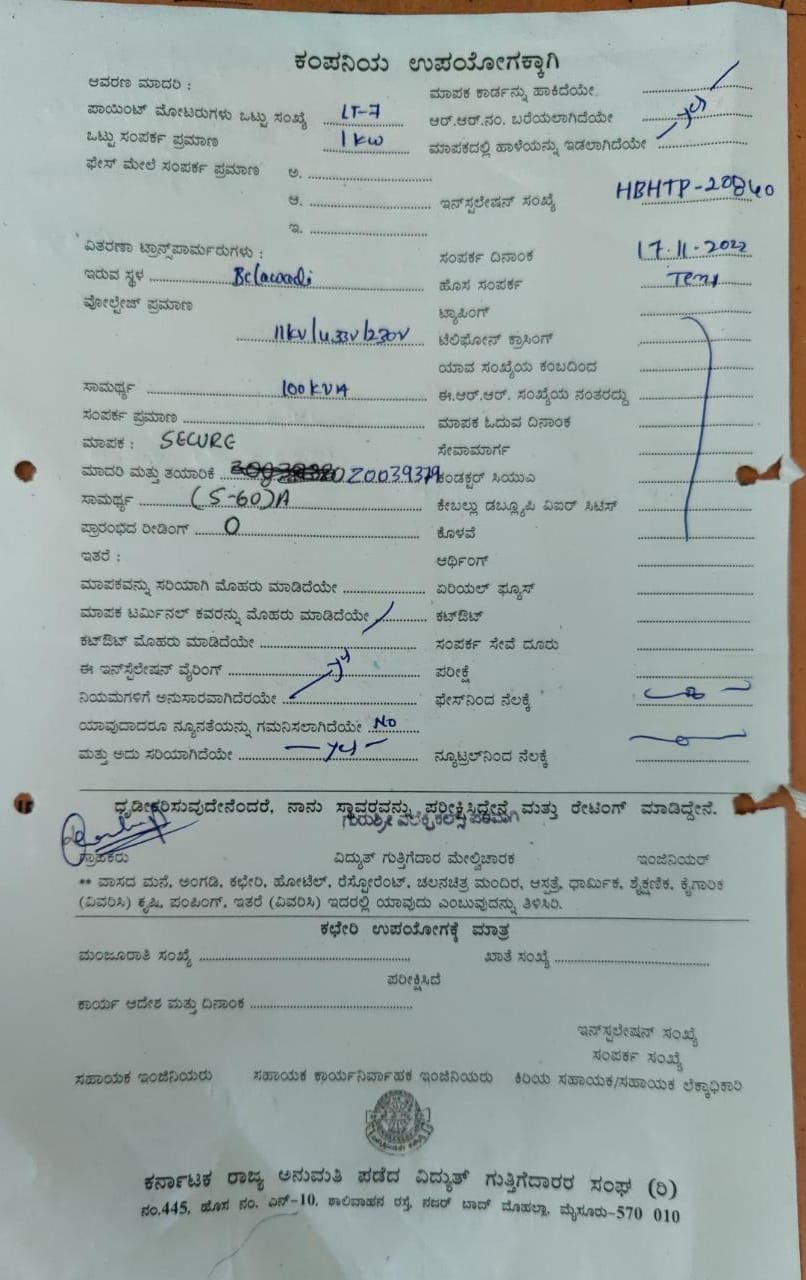 ಕಂಪನಿಯ ಉಪಯೋಗಕ್ಕಾಗಿ
ಆವರಣ ಮಾದರಿ :
ಮಾಪಕ ಕಾರ್ಡನ್ನು ಹಾಕಿದೆಯೇ
ಪಾಯಿಂಟ್ ಮೋಟರುಗಳು ಒಟ್ಟು ಸಂಖ್ಯೆ LT-7
ಆರ್.ಆರ್.ನಂ. ಬರೆಯಲಾಗಿದೆಯೇ
ಒಟ್ಟು ಸಂಪರ್ಕ ಪ್ರಮಾಣ 1 kw
ಮಾಪಕದಲ್ಲಿ ಹಾಳೆಯನ್ನು ಇಡಲಾಗಿದೆಯೇ
ಫೇಸ್ ಮೇಲೆ ಸಂಪರ್ಕ ಪ್ರಮಾಣ ಅ.
ಆ.
ಇನ್‌ಸ್ಟಲೇಷನ್ ಸಂಖ್ಯೆ HBHTP-20840
ಇ.
ವಿತರಣಾ ಟ್ರಾನ್ಸ್‌ಪಾರ್ಮರುಗಳು :
ಸಂಪರ್ಕ ದಿನಾಂಕ 17.11.2022
ಇರುವ ಸ್ಥಳ Belawadi
ಹೊಸ ಸಂಪರ್ಕ Temp
ವೋಲ್ಟೇಜ್ ಪ್ರಮಾಣ
ಟ್ಯಾಪಿಂಗ್
11kv/433v/230v
ಟೆಲಿಫೋನ್ ಕ್ರಾಸಿಂಗ್
ಯಾವ ಸಂಖ್ಯೆಯ ಕಂಬದಿಂದ
ಸಾಮರ್ಥ್ಯ 100 KVA
ಈ.ಆರ್.ಆರ್. ಸಂಖ್ಯೆಯ ನಂತರದ್ದು
ಸಂಪರ್ಕ ಪ್ರಮಾಣ
ಮಾಪಕ ಓದುವ ದಿನಾಂಕ
ಮಾಪಕ : SECURE
ಸೇವಾಮಾರ್ಗ
ಮಾದರಿ ಮತ್ತು ತಯಾರಿಕೆ
ಕಂಡಕ್ಟರ್ ಸಿಯುಎ
ಸಾಮರ್ಥ್ಯ (5-60)A
ಕೇಬಲ್ಲು ಡಬ್ಲ್ಯೂಪಿ ವಿಐರ್ ಸಿಟಿಸ್
ಪ್ರಾರಂಭದ ರೀಡಿಂಗ್ 0
ಕೊಳವೆ
ಇತರೆ :
ಆರ್ಥಿಂಗ್
ಮಾಪಕವನ್ನು ಸರಿಯಾಗಿ ಮೊಹರು ಮಾಡಿದೆಯೇ
ಏರಿಯಲ್ ಫ್ಯೂಸ್
ಮಾಪಕ ಟರ್ಮಿನಲ್ ಕವರನ್ನು ಮೊಹರು ಮಾಡಿದೆಯೇ
ಕಟ್‌ಔಟ್
ಕಟ್‌ಔಟ್ ಮೊಹರು ಮಾಡಿದೆಯೇ
ಸಂಪರ್ಕ ಸೇವೆ ದೂರು
ಈ ಇನ್‌ಸ್ಟೆಲೇಷನ್ ವೈರಿಂಗ್
ಪರೀಕ್ಷೆ
ನಿಯಮಗಳಿಗೆ ಅನುಸಾರವಾಗಿದೆರಯೇ
ಫೇಸ್‌ನಿಂದ ನೆಲಕ್ಕೆ
ಯಾವುದಾದರೂ ನ್ಯೂನತೆಯನ್ನು ಗಮನಿಸಲಾಗಿದೆಯೇ No
ಮತ್ತು ಅದು ಸರಿಯಾಗಿದೆಯೇ yes
ನ್ಯೂಟ್ರಲ್‌ನಿಂದ ನೆಲಕ್ಕೆ
ಧೃಡೀಕರಿಸುವುದೇನೆಂದರೆ, ನಾನು ಸ್ಥಾವರವನ್ನು ಪರೀಕ್ಷಿಸಿದ್ದೇನೆ ಮತ್ತು ರೇಟಿಂಗ್ ಮಾಡಿದ್ದೇನೆ.
ಗ್ರಾಹಕರು ವಿದ್ಯುತ್ ಗುತ್ತಿಗೆದಾರ ಮೇಲ್ವಿಚಾರಕ ಇಂಜಿನಿಯರ್
** ವಾಸದ ಮನೆ, ಅಂಗಡಿ, ಕಛೇರಿ, ಹೋಟೆಲ್, ರೆಸ್ಟೋರೆಂಟ್, ಚಲನಚಿತ್ರ ಮಂದಿರ, ಆಸ್ಪತ್ರೆ, ಧಾರ್ಮಿಕ, ಶೈಕ್ಷಣಿಕ, ಕೈಗಾರಿಕ
(ವಿವರಿಸಿ) ಕೃಷಿ, ಪಂಪಿಂಗ್, ಇತರೆ (ವಿವರಿಸಿ) ಇದರಲ್ಲಿ ಯಾವುದು ಎಂಬುವುದನ್ನು ತಿಳಿಸಿರಿ.
ಕಛೇರಿ ಉಪಯೋಗಕ್ಕೆ ಮಾತ್ರ
ಮಂಜೂರಾತಿ ಸಂಖ್ಯೆ ಖಾತೆ ಸಂಖ್ಯೆ
ಪರೀಕ್ಷಿಸಿದೆ
ಕಾರ್ಯ ಆದೇಶ ಮತ್ತು ದಿನಾಂಕ
ಇನ್‌ಸ್ಟಲೇಷನ್ ಸಂಖ್ಯೆ
ಸಂಪರ್ಕ ಸಂಖ್ಯೆ
ಸಹಾಯಕ ಇಂಜಿನಿಯರು ಸಹಾಯಕ ಕಾರ್ಯನಿರ್ವಾಹಕ ಇಂಜಿನಿಯರು ಕಿರಿಯ ಸಹಾಯಕ/ಸಹಾಯಕ ಲೆಕ್ಕಾಧಿಕಾರಿ
ಕರ್ನಾಟಕ ರಾಜ್ಯ ಅನುಮತಿ ಪಡೆದ ವಿದ್ಯುತ್ ಗುತ್ತಿಗೆದಾರರ ಸಂಘ (ರಿ)
ನಂ.445, ಹೊಸ ನಂ. ಎನ್-10, ಶಾಲಿವಾಹನ ರಸ್ತೆ, ನಜರ್ ಬಾದ್ ಮೊಹಲ್ಲಾ, ಮೈಸೂರು-570 010